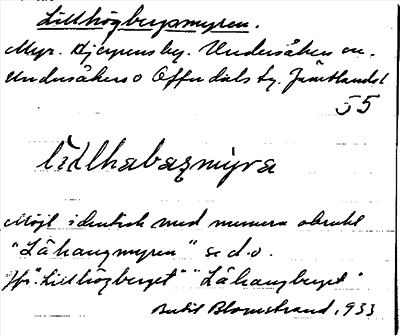 Lillhögbergsmyren.
Myr. Hjerpens by. Undersåkers sn.
Undersåkers o Offerdals tg. Jämtlands l
55
lillhabaʒmyra
Möjl identisk med numera okänt
"Låhaugmyren" se d.o.
Jfr "Lillhögberget" "Låhaugberget"
Bertil Blomstrand, 1933